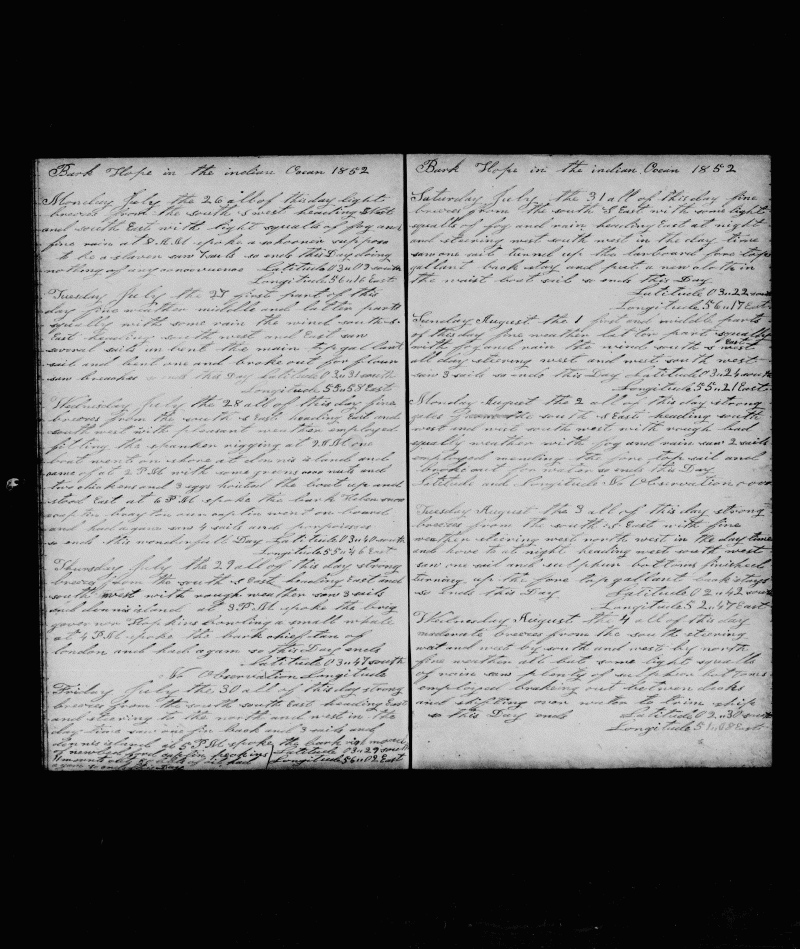 Bark Hope in the indian Ocean 1852
Monday July the 26 all of this day light
breeses from the south & west heading East
and south East with light squalls of fog and
fine rain at 8 A M spoke a schooner suppose
to be a slaver saw 4 sails so ends this Day doing
nothing of any Latitude 03..03 south
Longitude 56..16 East
Tuesday July the 27 first part of this
day fine weather middle and latter parts
squally with some rain the wind south &
East heading south west and East saw
several sails un bent the main top gallant
sail and bent one and broke out for flour
saw breaches so ends this Day Latitude 03..31 south
Longitude 55..58 East
Wednesday July the 28 all of this day fine
breeses from the south & East heading East and
south west with pleasant weather employed
fitting the spanker rigging at 9 A M one
boat went on shore at dennis island and
came of at 2 P M with some greens nuts and
two chickens and 3 eggs hoisted the boat up and
stood East at 6 P M spoke the bark Helen
captin our captin went on board
and had a gam saw 4 sails and porpoises
so ends this wonderfull Day Latitude 03..40 south
Longitude 55..46 East
Thursday July the 29 all of this day strong
breeses from the south & East heading East and
south west with rough weather saw 3 sails
and dennis island at 3 P M spoke the brig
govenor Hopkins a small whale
at 4 P M spoke the bark chieftan of
london and had a gam so this Day ends
Latitude 03..47 south
No Observation Longitude
Friday July the 30 all of this day strong
breeses from the south south East heading East
and steering to the north and west in the
day time saw one fin back and 3 sails and
dennis island at 5 P M spoke the bark
of newbedford Latitude 03..29 south
Longitude 56..02 East
Bark Hope in the indian Ocean 1852
Saturday July the 31 all of this day fine
breeses from the south & East with some light
squalls of fog and rain heading East at night
and steering west south west in the day time
saw one sail turned up the larboard fore top
gallant back stay and put a new cloth in
the waist boat sail so ends this Day
Latitude 03..22 south
Longitude 56..17 East
Sunday August the 1 first and middle parts
of this day fine weather latter part squally
with fog and rain the wind south & East
all day steering west and west south west
saw 3 sails so ends this Day Latitude 03..24 south
Longitude 55..21 East
Monday August the 2 all of this day strong
gales from the south & East heading south
west and west south west with rough bad
squally weather with fog and rain saw 2 sails
employed mending the fore top sail and
broke out for water so ends the Day
Latitude and Longitude No Observation
Tuesday August the 3 all of this day strong
breeses from the south & East with fine
weather steering west north west in the day time
and hove to at night heading west south west
saw one sail and sulphur bottoms finished
turning up the fore top gallant back stays
so Ends this Day Latitude 02..42 south
Longitude 52..47 East
Wednesday August the 4 all of this day
moderate breeses from the south steering
west and west by south and west by north
fine weather all but some light squalls
of rain saw plenty of sulpher bottoms
employed breaking out between decks
and shifting over water to trim ship
so this Day ends Latitude 02..30 south
Longitude 51..08 East